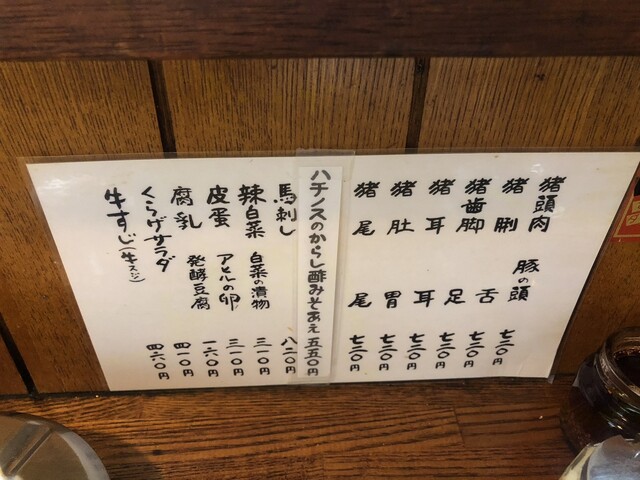 猪頭肉 豚の頭 七二〇円
猪脷 舌 七二〇円
猪歯脚 足 七二〇円
猪耳 耳 七二〇円
猪肚 胃 七二〇円
猪尾 尾 七二〇円
ハチノスのからし酢みそあえ 五五〇円
馬刺し 八二〇円
辣白菜 白菜の漬物 三一〇円
皮蛋 アヒルの卵 三一〇円
腐乳 発酵豆腐 一六〇円
くらげサラダ 四一〇円
牛すじ(牛スジ) 四六〇円